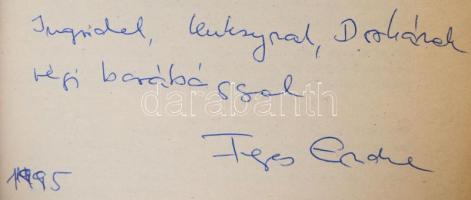 Ingridnek, Kukszynak, Dorkának
régi barátsággal
Fejes Endre
1995
darabanth